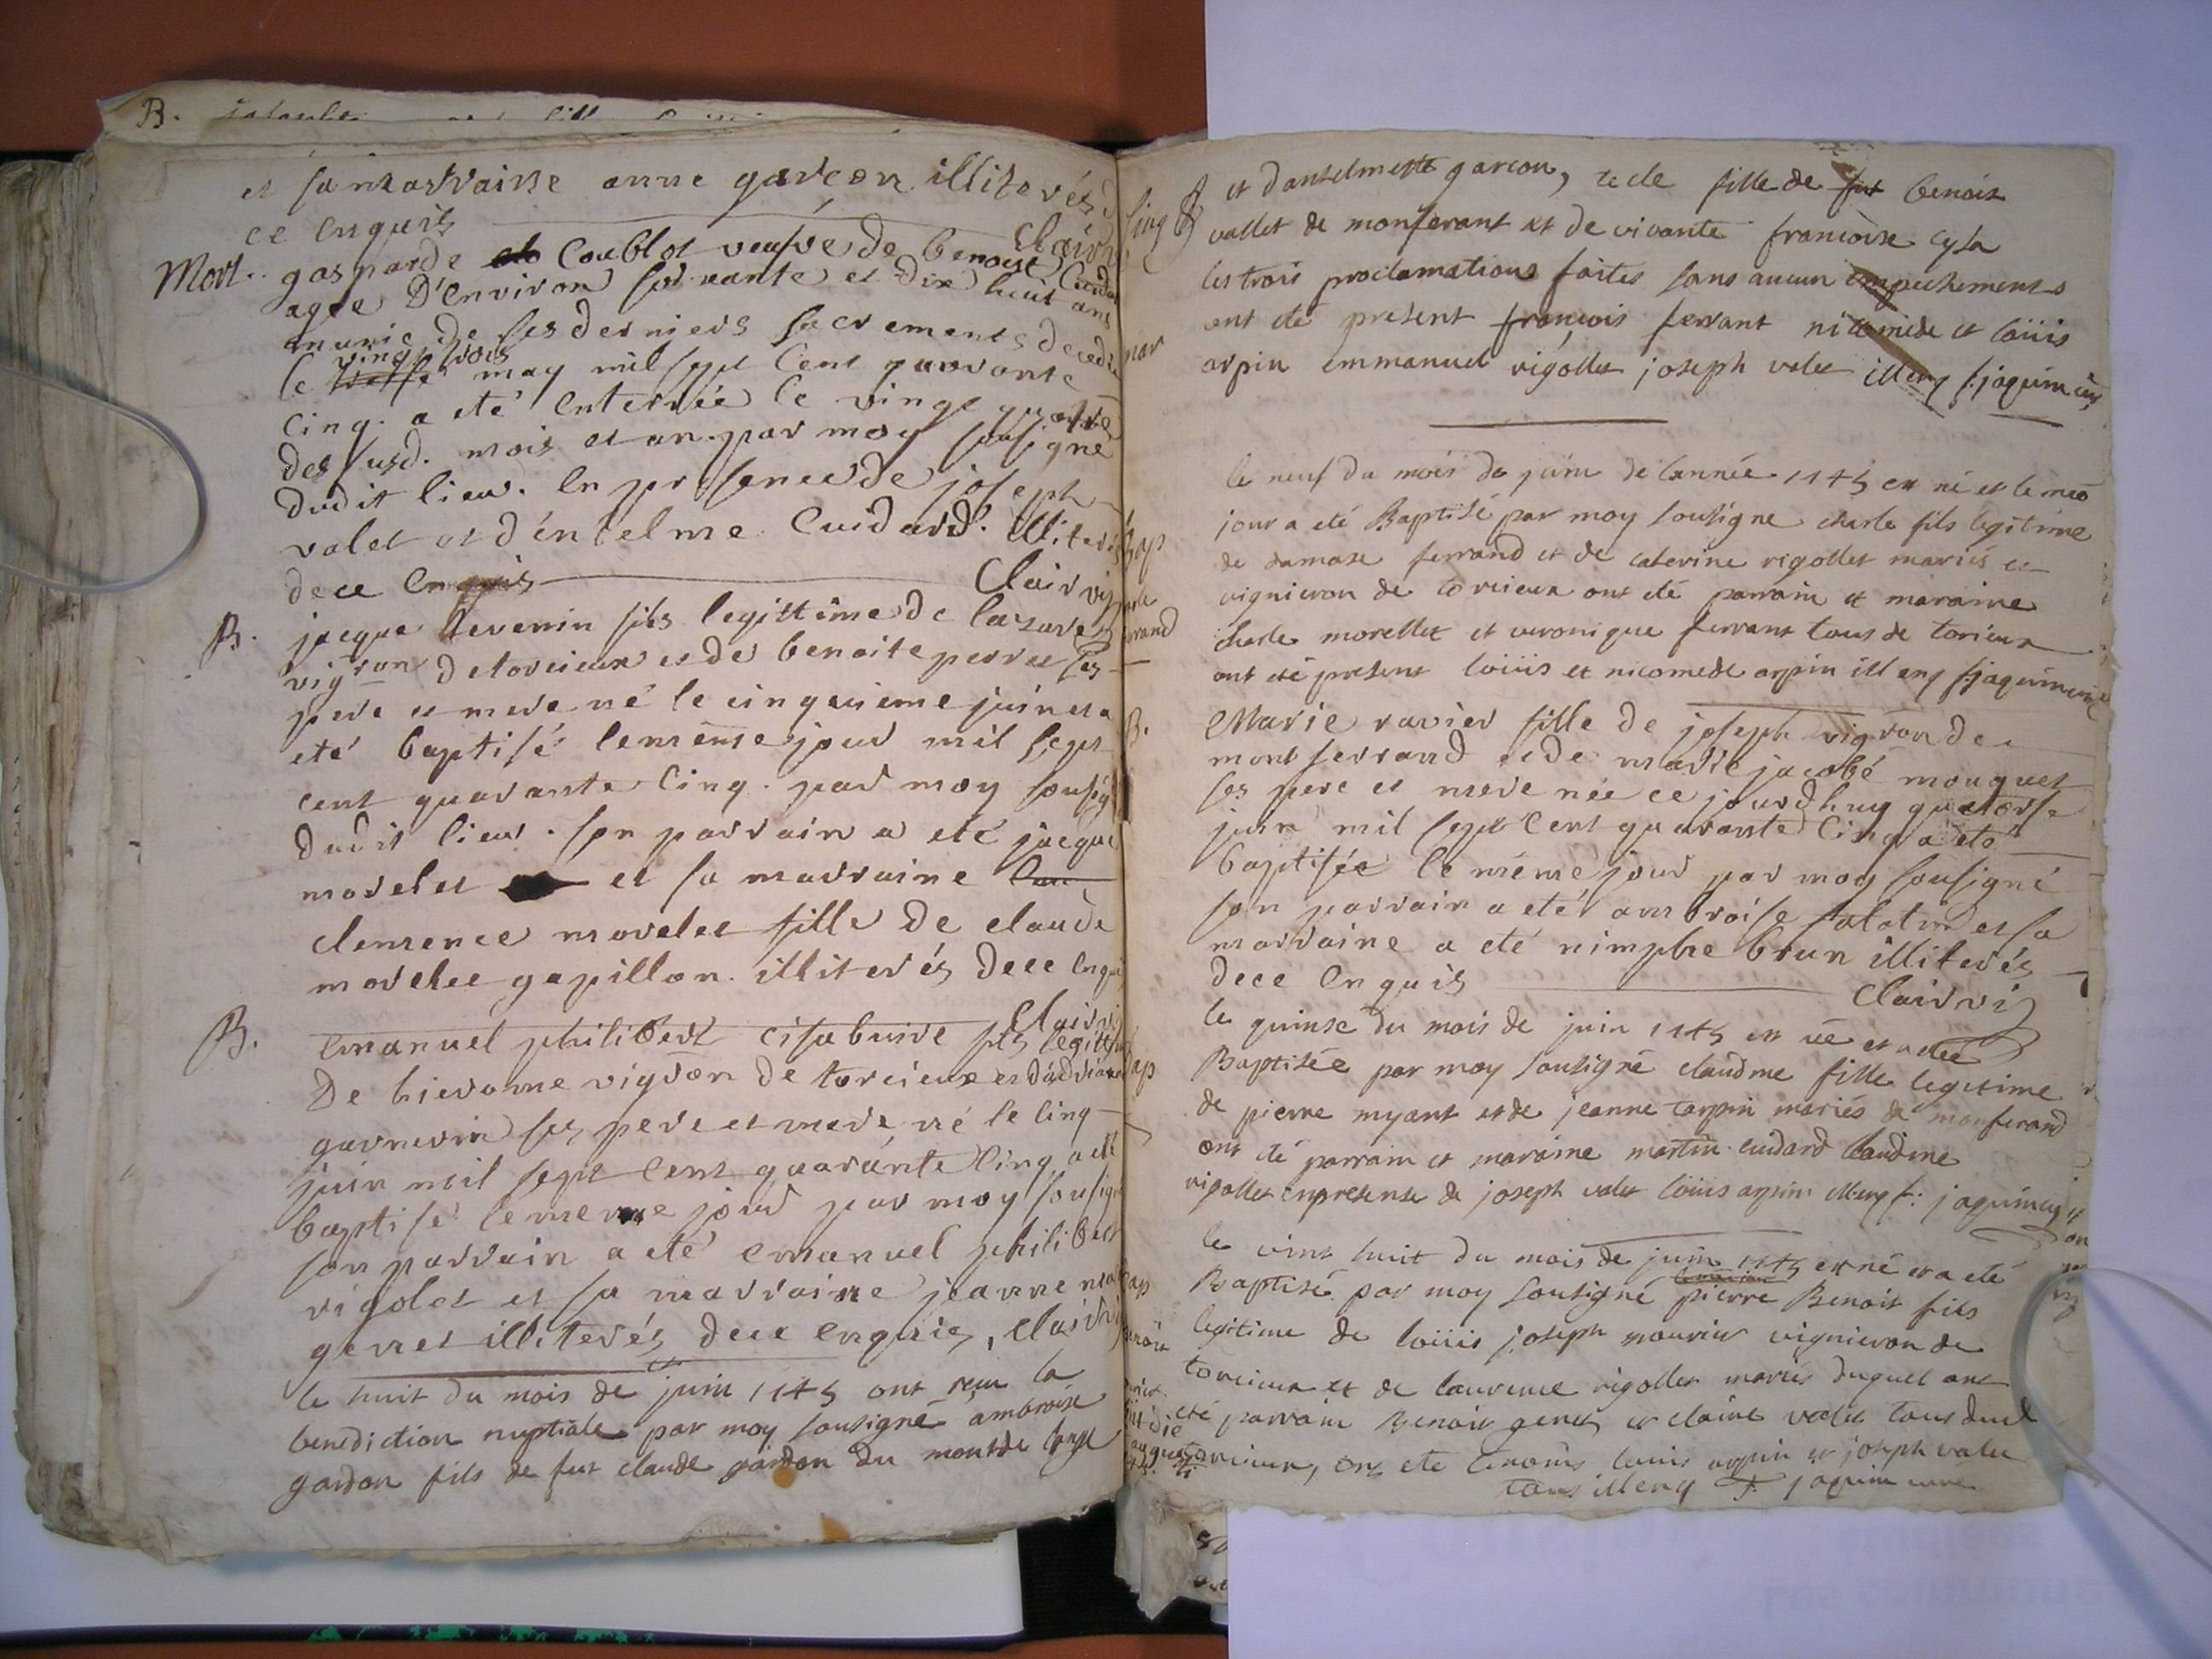 B.
et sa marraine anne garçon illiterés d
ce enquis
Clairvi
Mort. gasparde Coublot veufve de benoist Cuidar
agée D'environ soixante et dix huit ans
munie de ses derniers sacrements decedée
le vingt trois may mil sept cent quarante
Cinq. a eté enterrée le vingt quatre
des susd. mois et an par moy sousigné
dudit lieu. En presence de joseph
valet et d'entelme Cuidard. illiterés
de ce enquis Clairvi
B. jacque Tevenin fils legittime de lazare
vigron de torcieux et de benoite perret ses
pere et mere né le cinquieme juin et a
eté baptisé le meme jour mil sept
cent quarante Cinq. par moy sousig
dudit lieu. son parrain a eté jacque
morelet et sa marraine
clemence morelet fille de claude
morelet gapillon. illiterés de ce enqui
Clairvi
B. Emanuel philibert cisabuire fils legitti
De hierome vigron de torcieux et d'adriane
garnerin ses pere et mere né le cinq
juin mil sept cent quarante Cinq a eté
baptisé le meme jour par moy sousigné
son parrain a eté emanuel philibert
rigolet et sa marraine jeanne
genet illiterés de ce enquis, Clairvi
le huit du mois de juin 1745 ont reçu la
benediction nuptiale par moy sousigné ambroise
gardon fils de fut claude gardon du mont de lange
et dantelmette garcon, icelle fille de fut benoit
vallet de monferant et de vivante francoise cysa
les trois proclamations faites sans aucun empechements
ont eté present françois ferrant nicomede et loüis
arpin emmanuel rigollet joseph valet ill enq f: jaquin curé
le neuf du mois de juin de l'année 1745 est né et le meo
jour a eté Baptisé par moy sousigne charle fils legitime
de damase ferrand et de caterine rigollet mariés et
vignieron de torcieux ont eté parrain et maraine
charle morellet et veronique ferrant tous de torcieux
ont eté present loüis et nicomede arpin ill enq f: jaquin curé
B. Marie ravier fille de joseph vigron de
montferrand et de marie jacobé mouguet
ses pere et mere née ce jourd'huy quatorse
juin mil sept cent quarante Cinq a eté
baptisée le méme jour par moy sousigné
son parrain a eté ambroise salatin et sa
marraine a eté nimphe brun illiterés
de ce enquis Clairvi
le quinse du mois de juin 1745 est née et a eté
Baptisée par moy sousigné claudine fille legitime
de pierre myant et de jeanne tarpin mariés de monferand
ont eté parrain et maraine martin cuidard claudine
rigollet en presense de joseph valet loüis arpin ill enq f: jaquin curé
le vint huit du mois de juin 1745 est né et a eté
Baptisé par moy sousigné pierre Benoit fils
legitime de loüis joseph mourier vignieron de
torcieux et de laurence rigollet mariés duquel ont
eté parrain Benoit genet et claire valet tous dud
torcieux, ont ete temoins louis arpin et joseph valet
tous ill enq f. jaquin curé